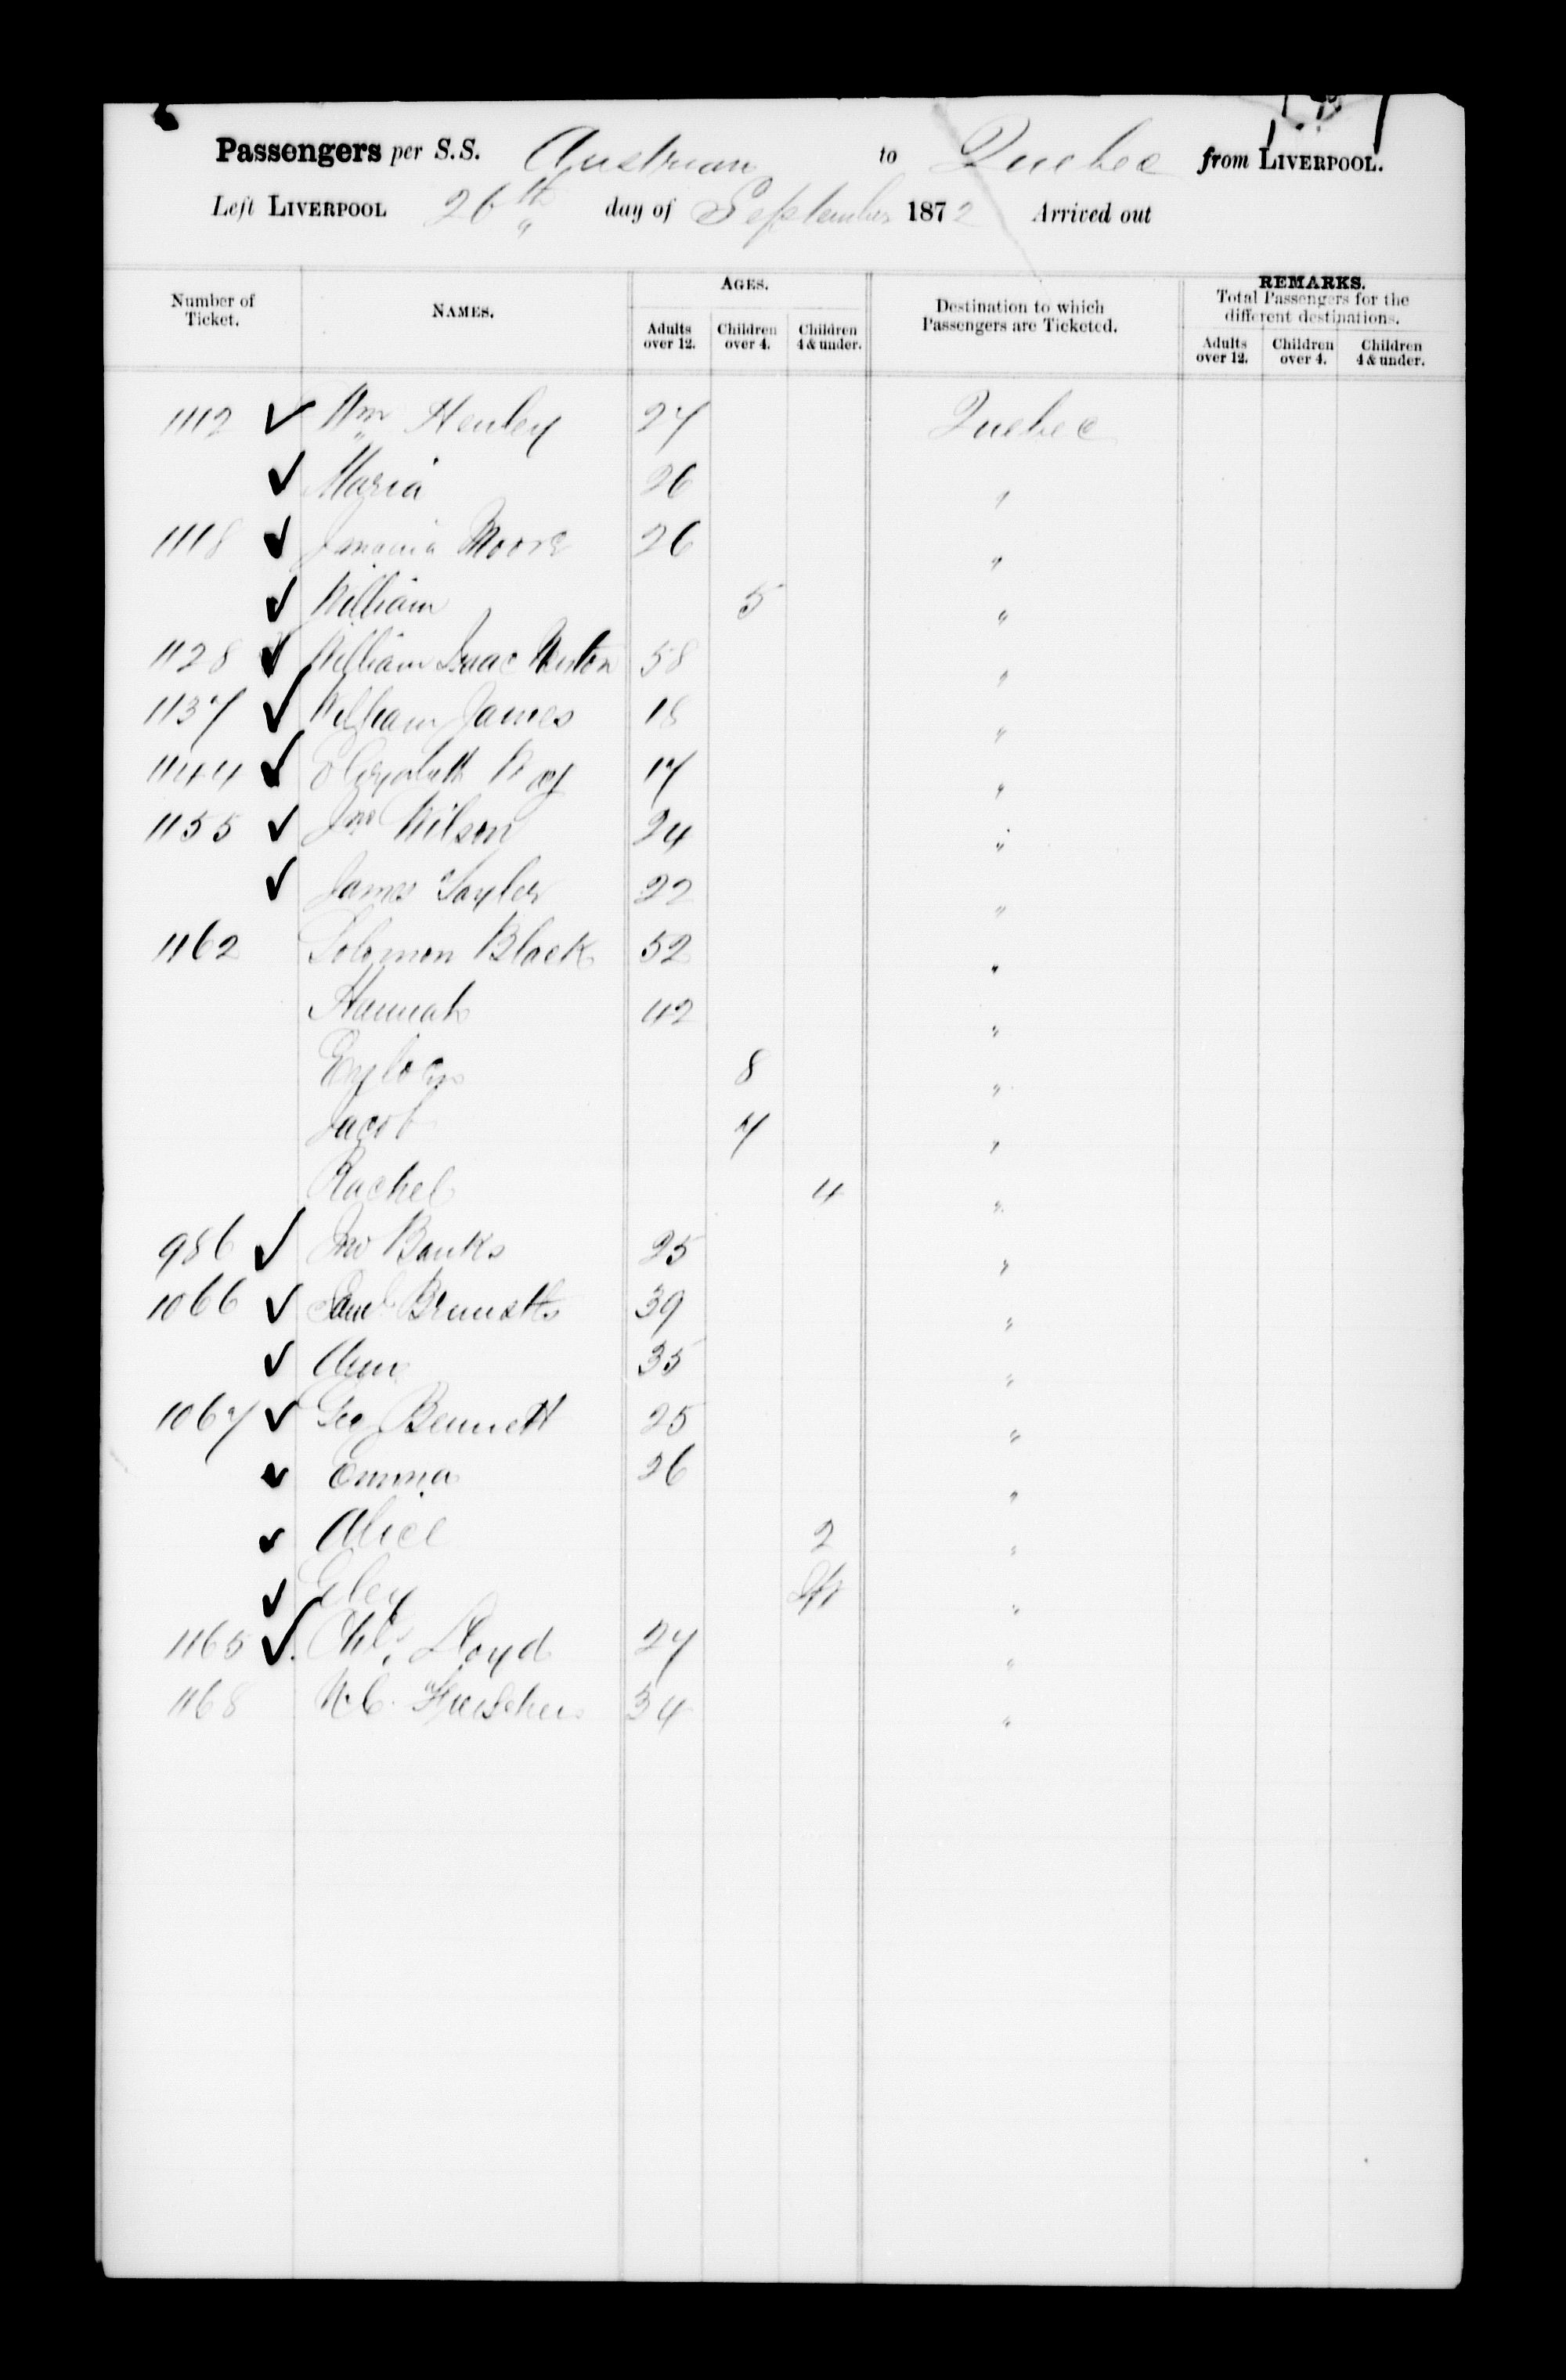 Passengers per S.S. Austrian to Quebec from LIVERPOOL.
Left LIVERPOOL 26th day of September 1872 Arrived out
Number of Ticket. NAMES. AGES. Destination to which Passengers are Ticketed. REMARKS. Total Passengers for the different destinations.
Adults over 12. Children over 4. Children 4 & under. Adults over 12. Children over 4. Children 4 & under.
1112 ✓ Wm Henley 27 Quebec
✓ Maria 26 "
1118 ✓ Moore 26 "
✓ William 5 "
1128 ✓ William Isaac 58 "
1137 ✓ William James 18 "
1144 ✓ Elizabeth 17 "
1155 ✓ Jno Wilson 24 "
✓ James Taylor 22 "
1162 Solomon Black 52 "
Hannah 42 "
8 "
Jacob 7 "
Rachel 4 "
986 ✓ Jno Banks 25 "
1066 ✓ Saml 39 "
✓ Ann 35 "
1067 ✓ Geo Bennett 25 "
✓ Emma 26 "
✓ Alice 2 "
✓ "
1165 ✓ Chls. Lloyd 27 "
1168 34 "